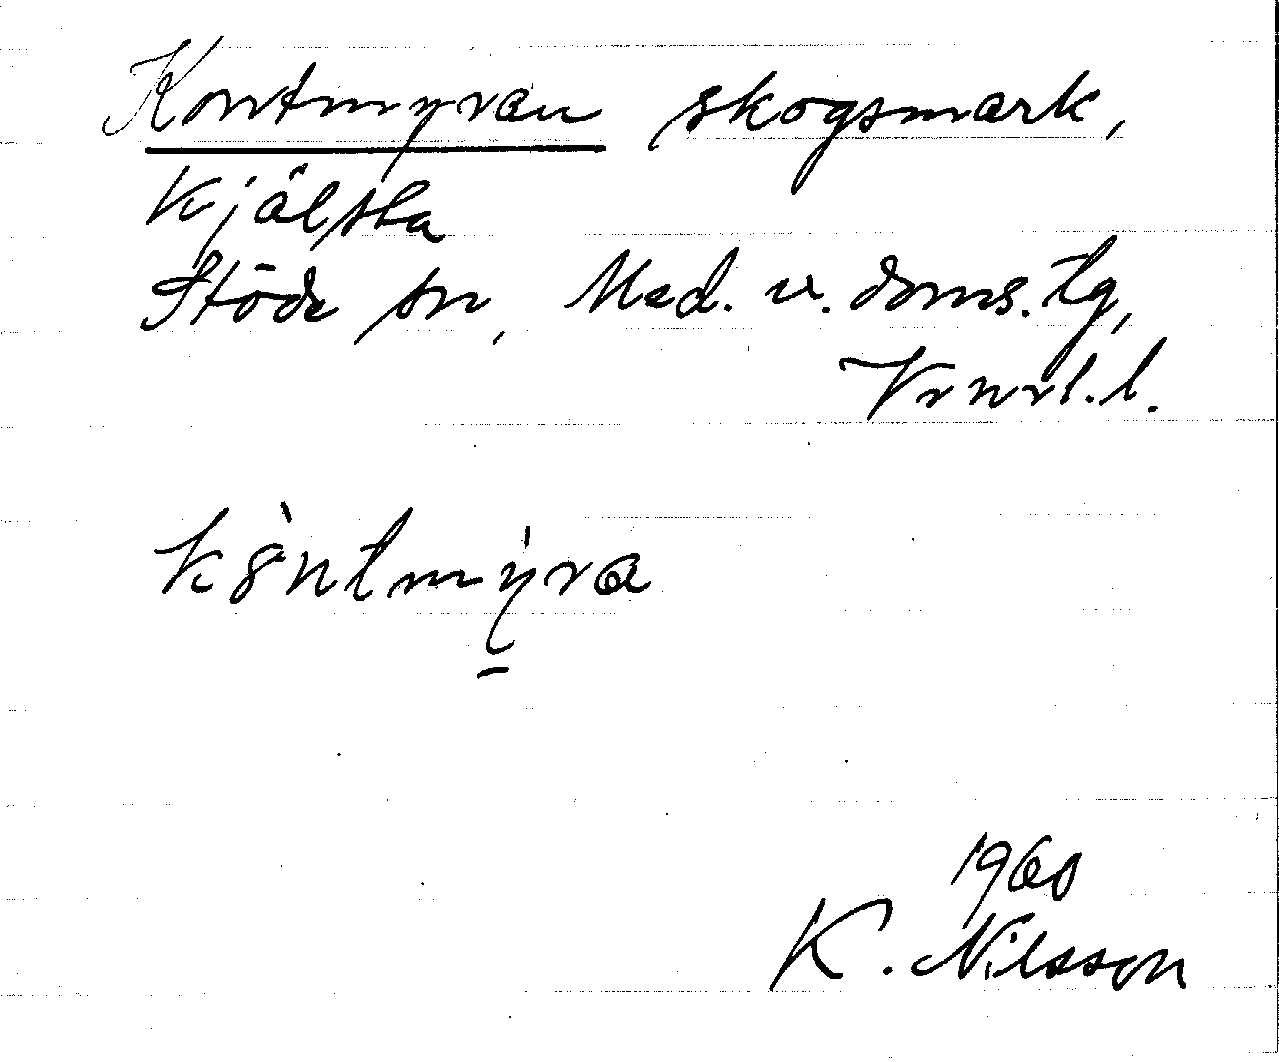 Kontmyran skogsmark,
Kjälsta
Stöde sn, Med. v. doms. tg,
Vrnrl. l.
kȍntmy̠̍ra
1960
K. Nilsson